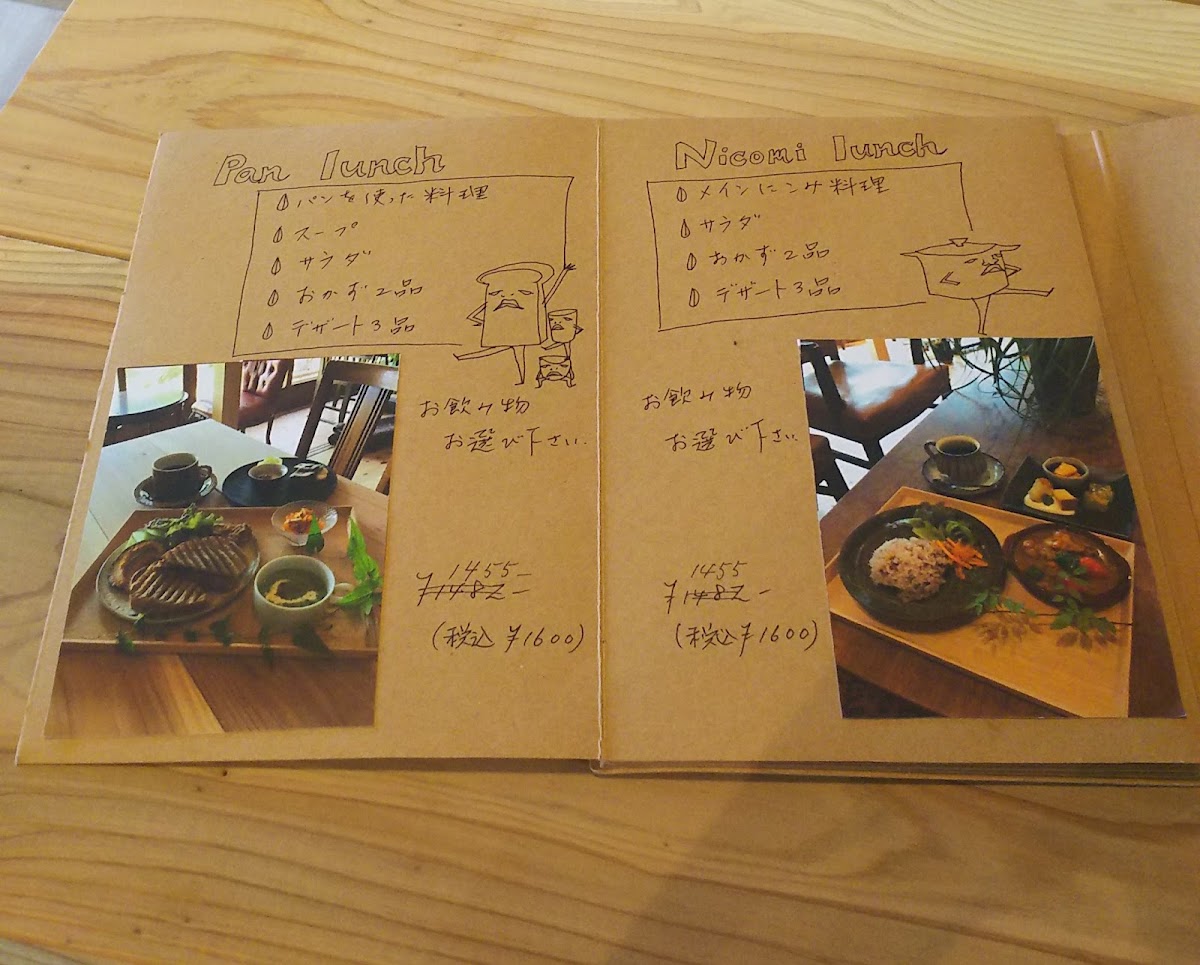 Pan lunch
パンを使った料理
スープ
サラダ
おかず2品
デザート3品
お飲み物
お選び下さい.
1455-
¥1482-
(税込 ¥1600)
Nicomi lunch
メインにこみ料理
サラダ
おかず2品
デザート3品
お飲み物
お選び下さい.
1455
¥1482-
(税込 ¥1600)